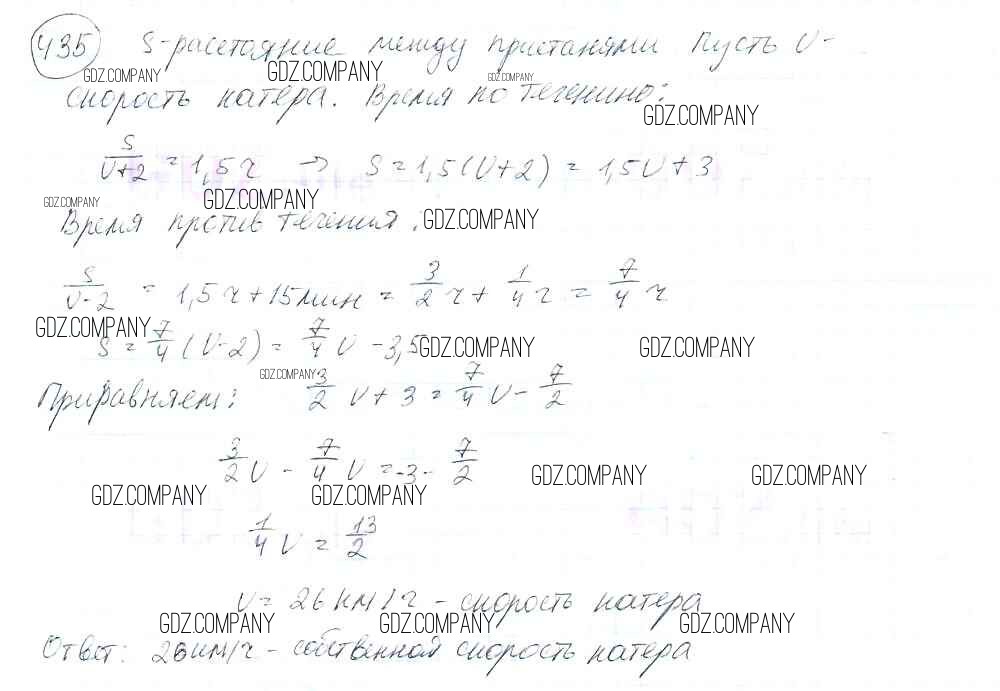 435 S-расстояние между пристанями Пусть V-
GDZ.COMPANY GDZ.COMPANY GDZ.COMPANY
скорость катера. Время по течению:
GDZ.COMPANY
S/(V+2) = 1,5ч → S = 1,5(V+2) = 1,5V+3
GDZ.COMPANY GDZ.COMPANY
Время против течения: GDZ.COMPANY
S/(V-2) = 1,5ч+15мин = 3/2ч + 1/4ч = 7/4ч
GDZ.COMPANY
S = 7/4(V-2) = 7/4V - 3,5 GDZ.COMPANY GDZ.COMPANY
GDZ.COMPANY
Приравняем: 3/2V + 3 = 7/4V - 7/2
3/2V - 7/4V = -3 - 7/2
GDZ.COMPANY GDZ.COMPANY
GDZ.COMPANY GDZ.COMPANY
1/4V = 13/2
V = 26 км/ч - скорость катера
GDZ.COMPANY GDZ.COMPANY GDZ.COMPANY
Ответ: 26км/ч - собственная скорость катера